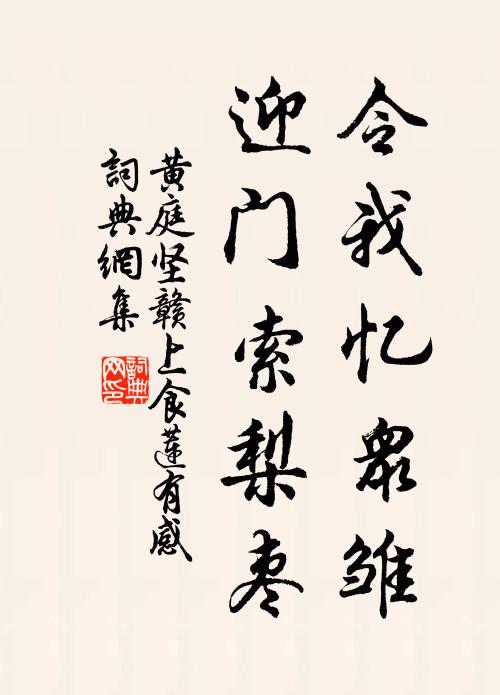 令我忆眾雏
迎门索梨枣
黄庭坚赣上食蓮有感
詞典網集
詞典网印